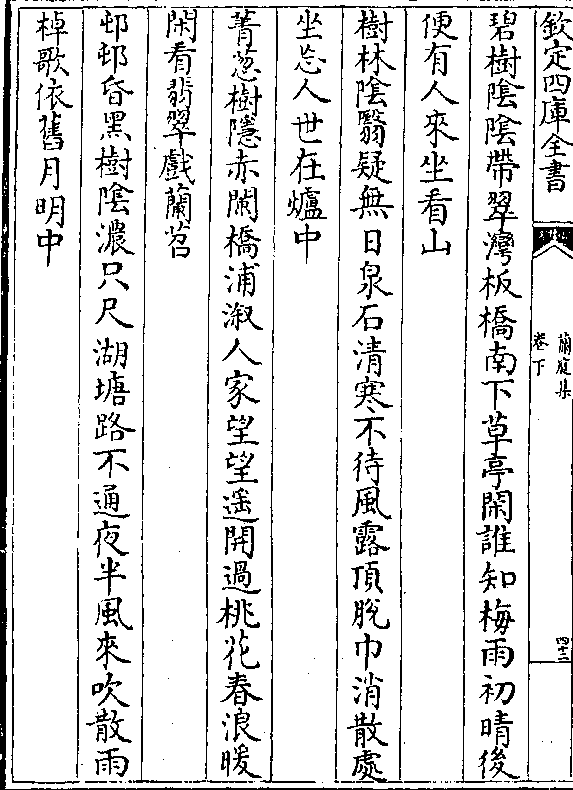 欽定四庫全書
蘭庭集
卷下
四十三
碧樹陰陰帶翠灣板橋南下草亭閑誰知梅雨初晴後
便有人來坐看山
樹林陰翳疑無日泉石清寒不待風露頂脫巾消散處
坐忘人世在爐中
菁葱樹隱赤闌橋浦溆人家望望遥開過桃花春浪暖
閑看翡翠戲蘭苕
邨邨昏黑樹陰濃只尺湖塘路不通夜半風來吹散雨
棹歌依舊月明中